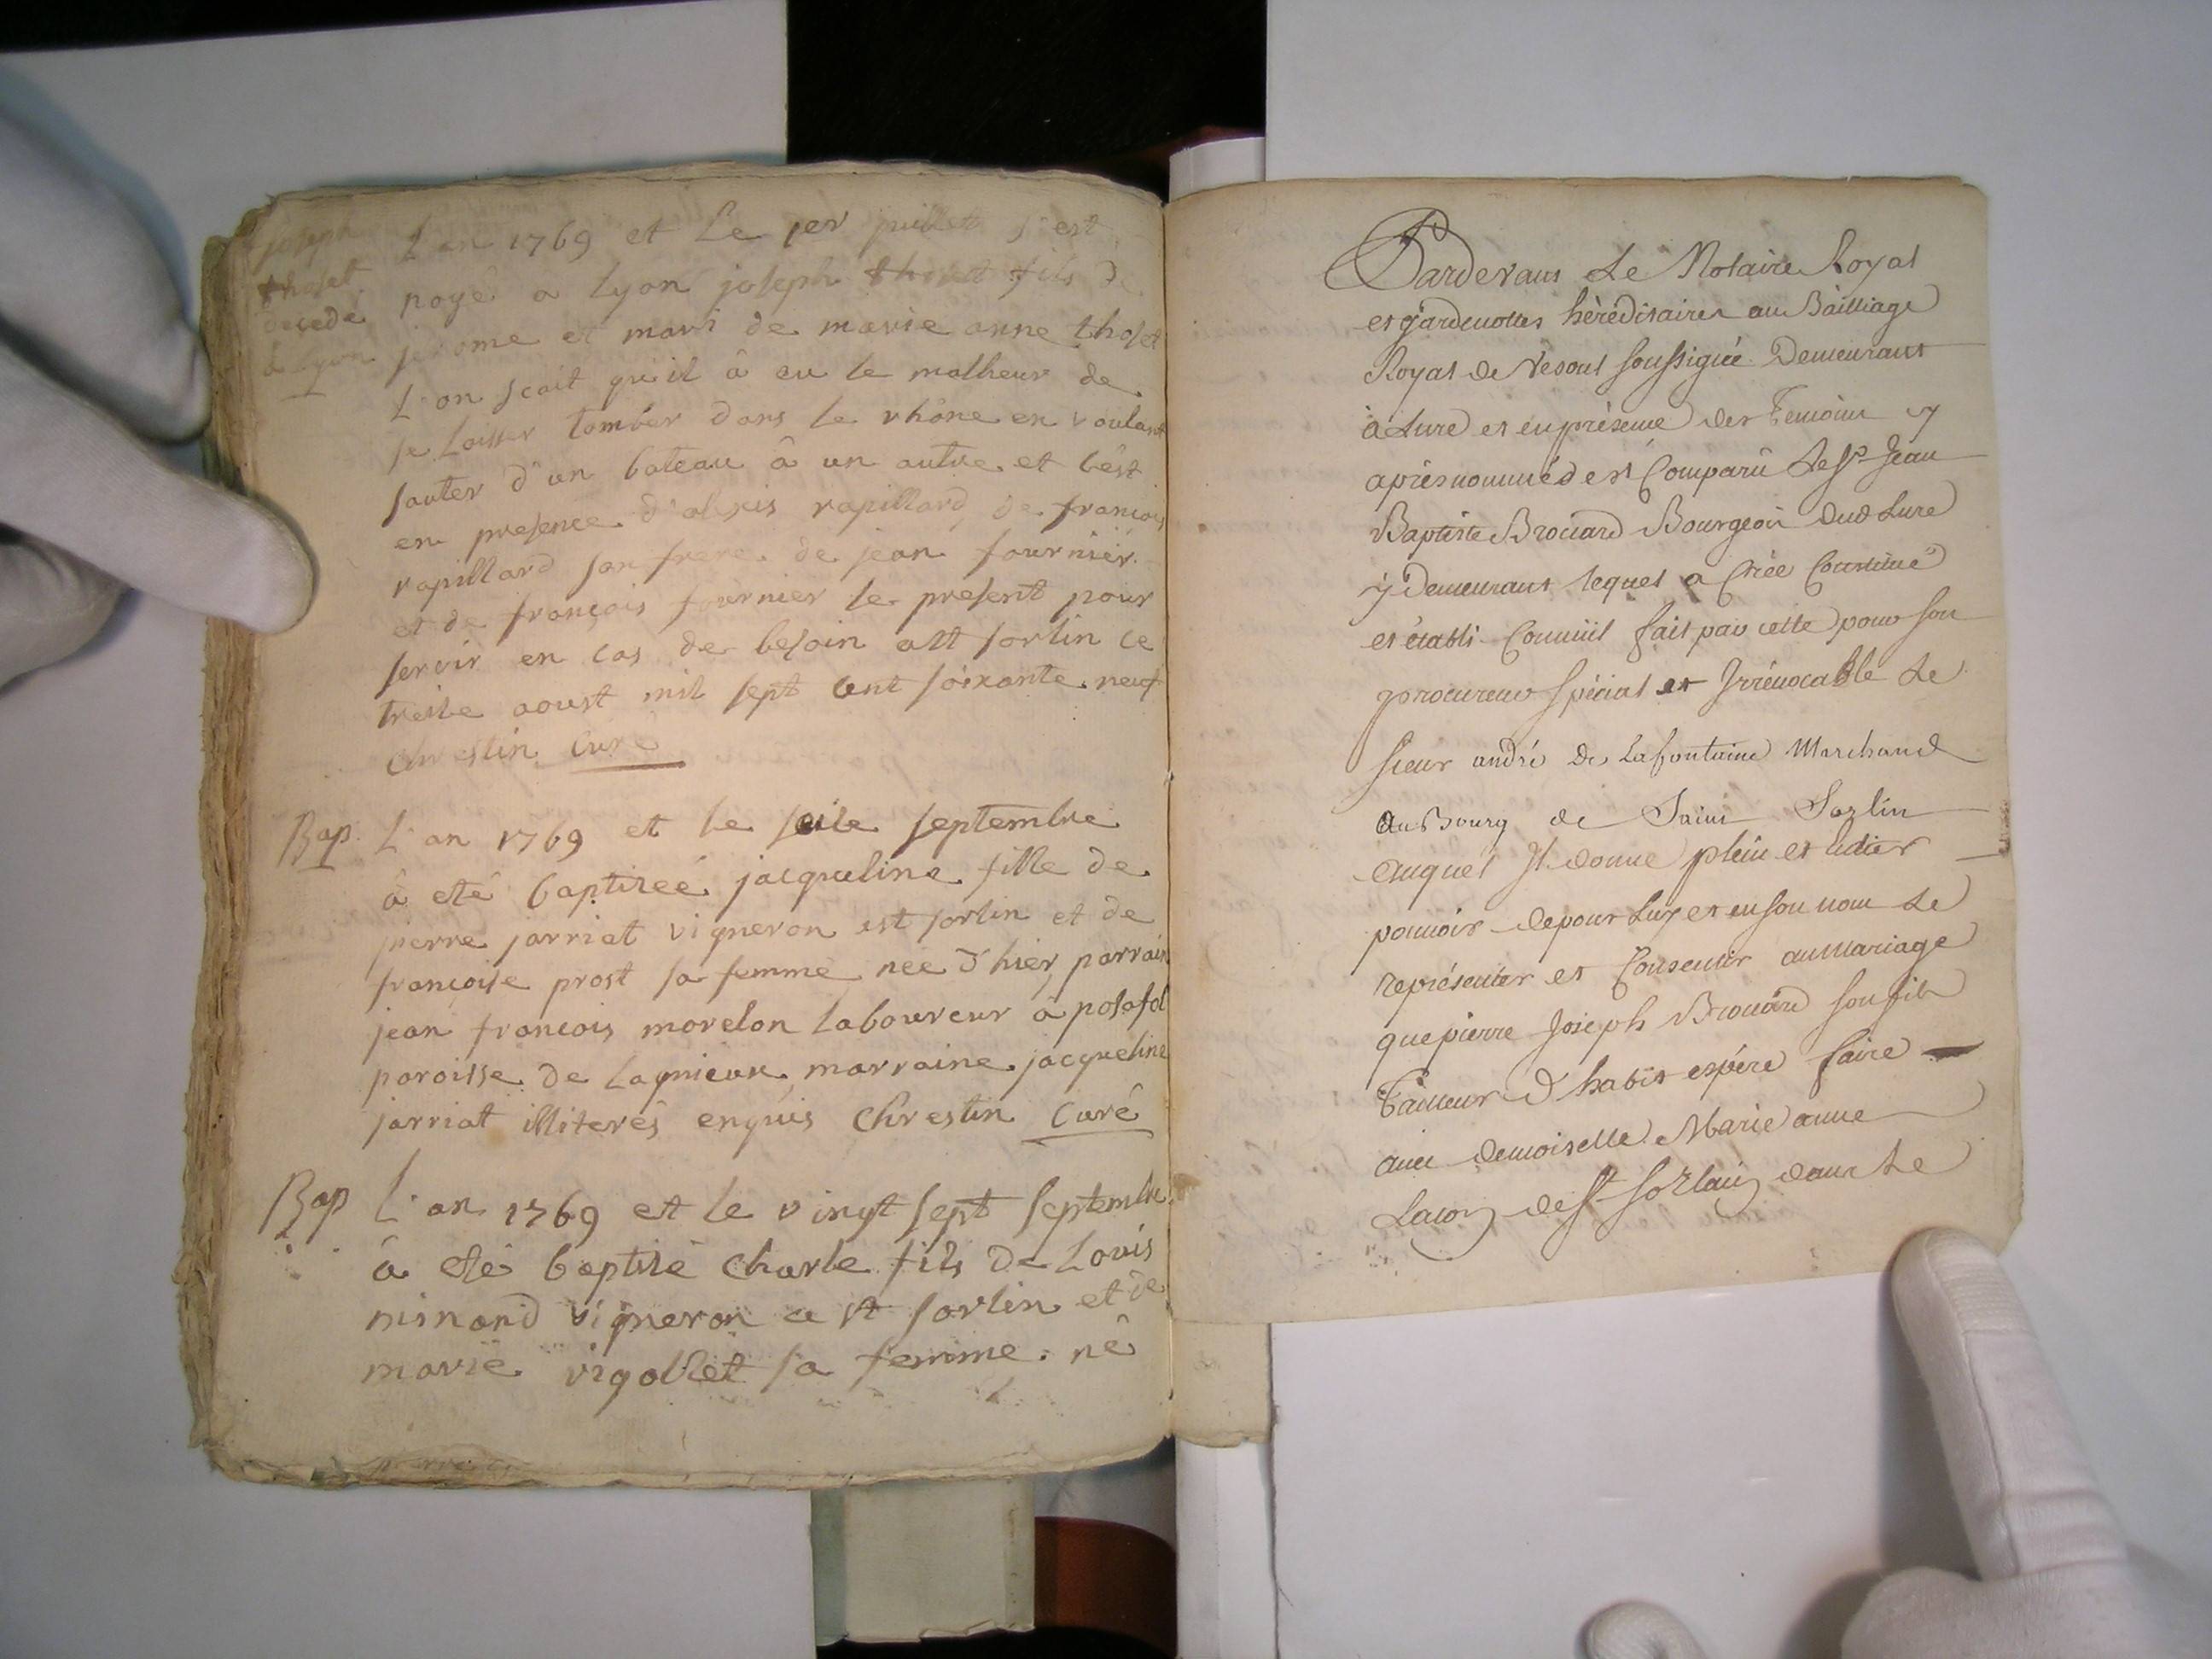 joseph
tholet
decedé
à Lyon
L'an 1769 et Le 1er juillet s'est
noyé a Lyon joseph tholet fils de
jerome et mari de marie anne tholet
L'on scait qu'il â eu le malheur de
se laisser tomber dans le rhône en voulant
sauter d'un bateau â un autre et c'est
en presence d'alexis rapillard, de francois
rapillard son frere de jean fournier.
et de françois fournier le present pour
servir en cas de besoin a st sorlin ce
treise aoust mil sept cent soixante neuf
Chrestin Curé
Bap. L'an 1769 et le seise septembre
â eté baptiseé jacqueline fille de
pierre jarriat vigneron a st sorlin et de
françoise prost sa femme née d'hier, parrain
jean francois morelon laboureur â posafol
paroisse de Lagnieux, marraine jacqueline
jarriat illiterés enquis Chrestin Curé
Bap L'an 1769 et le vingt sept septembre
â eté baptisé Charle fils de Louis
minand vigneron a st sorlin et de
marie vigollet sa femme. né
Pardevant Le Notaire Royal
et gardenottes hèréditaires au Bailliage
Royal de Vesoul soussigné Demeurant
à Lure et en présence des Temoins cy
après nommés est Comparû Le Sr Jean
Baptiste Brouard Bourgeois dud Lure
y Demeurant lequel a Créé Constitué
et établi Comme il fait par cette pour son
procureur spécial et Irrévocable Le
sieur andré De Lafontaine Marchand
au Bourg de Saint Sorlin
auquel Il donne plein et Entier
pouvoir de pour Luy et en son nom Le
représenter et Consentir au mariage
que pierre Joseph Brouard son fils
Tailleur D'habits espére faire
avec demoiselle Marie anne
de St Sorlain dans Le